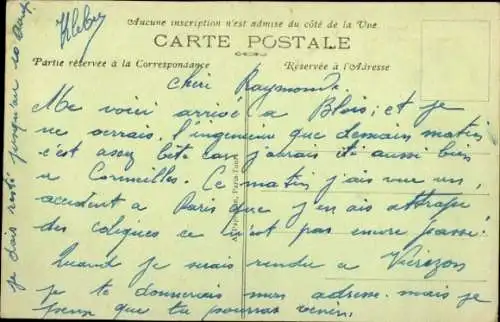 Kleber
Aucune inscription n'est admise du côté de la Vue
CARTE POSTALE
Partie réservée à la Correspondance
Réservée à l'Adresse
Chéri Raymonde.
Me voici arrivé a Blois; et je
ne verrais l'ingenieur que demain matin
c'est assez bête car j'aurais été aussi bien
a Cormeilles. Ce matin j'ais vue un
accident a Paris que j'en ais attrapé
des coliques ce n'est pas encore passé.
Quand je serais rendu a Vierzon
je te donnerais mon adresse mais je
peux que tu pourras venir.
je dois resté jusqu'au 10